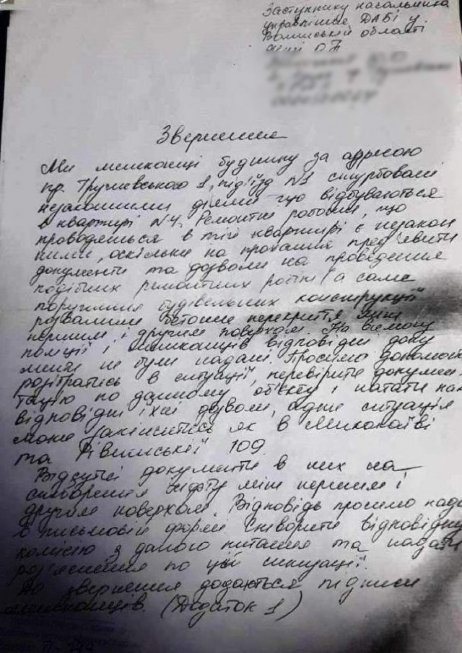 Заступнику начальника
управління ДАБІ у
Волинській області
Звернення
Ми мешканці будинку за адресою
пр. Грушевського 1, під'їзд №1 стурбовані
незаконними діями що відбуваються
в квартирі №4. Ремонтні роботи, що
проводяться в тій квартирі є незакон
ними, оскільки на прохання пред'явити
документи та дозволи на проведення
подібних ремонтних робіт (а саме
порушення будівельних конструкцій
бетонне перекриття між
першим і другим поверхом. На вимогу
поліції і мешканців відповідні доку
менти не були надані. Просимо допомогти
розібратись в ситуації, перевірити докумен
тацію по даному об'єкту і надати нам
відповідні їхні дозволи, адже ситуація
може закінчитися як в Миколаєві
та Рівненській 109
Відсутні документи в них на
створення ліфту між першим і
другим поверхом. Відповідь просимо нада
в письмовій формі створити відповідну
комісію з даного питання та надати
роз'яснення по цій ситуації.
До звернення додаються підписи
мешканців. (Додаток 1)